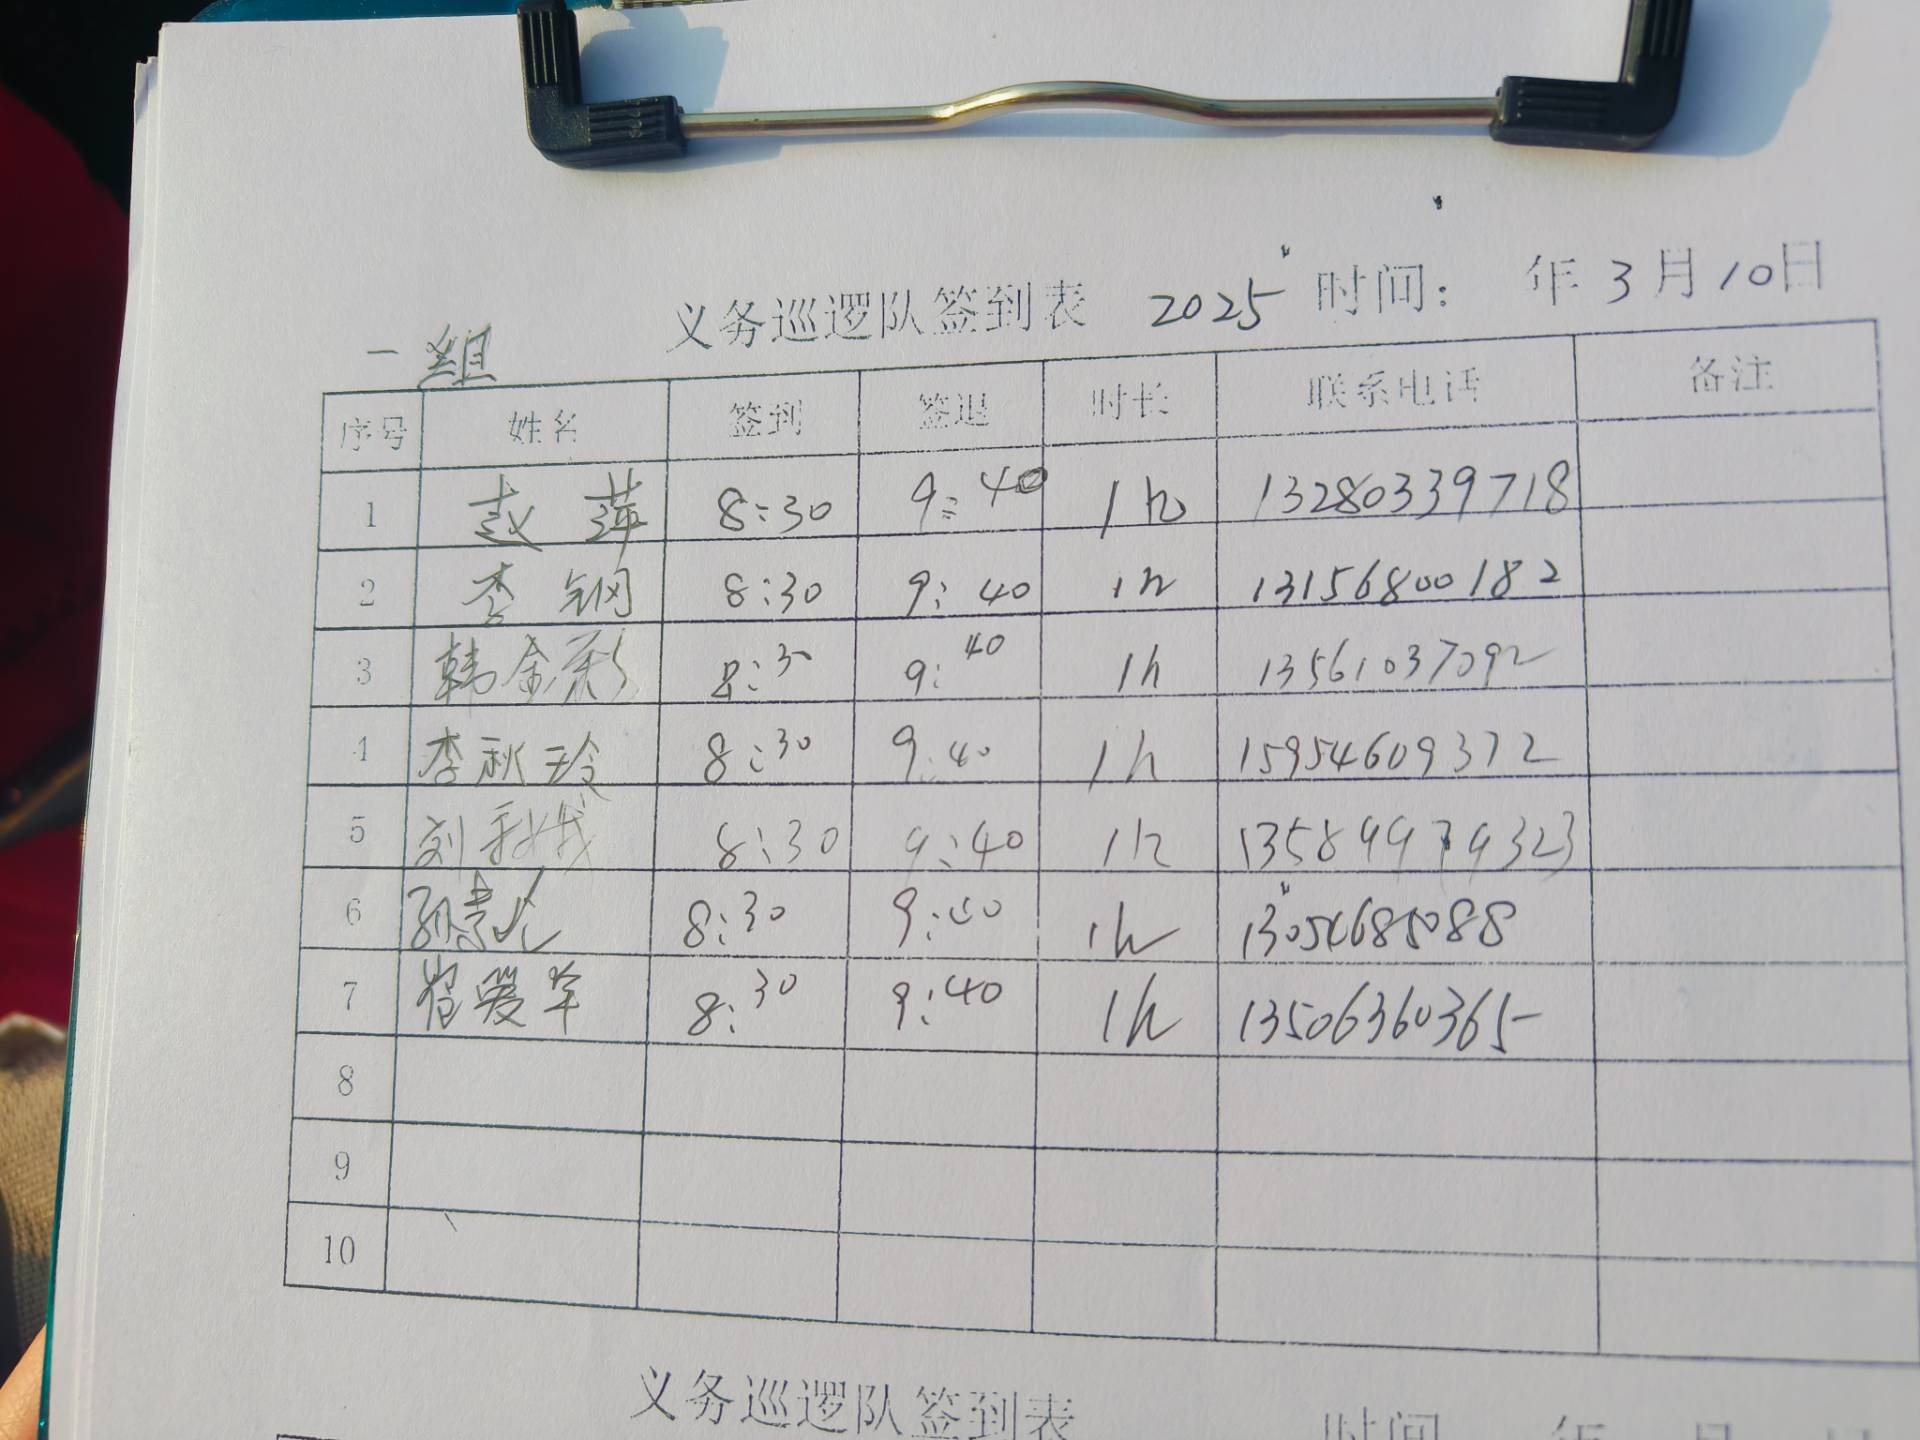 义务巡逻队签到表 2025 时间: 年 3月10日
一组
序号 姓名 签到 签退 时长 联系电话 备注
1 赵萍 8:30 9:40 1h 13280339718
2 李钢 8:30 9:40 1h 13156800182
3 韩金彩 8:30 9:40 1h 13561037092
4 李秋玲 8:30 9:40 1h 15954609372
5 刘秋 8:30 9:40 1h
6 孙 8:30 9:40 1h
7 崔爱军 8:30 9:40 1h 13506360365
8
9
10
义务巡逻队签到表 时间 年 月